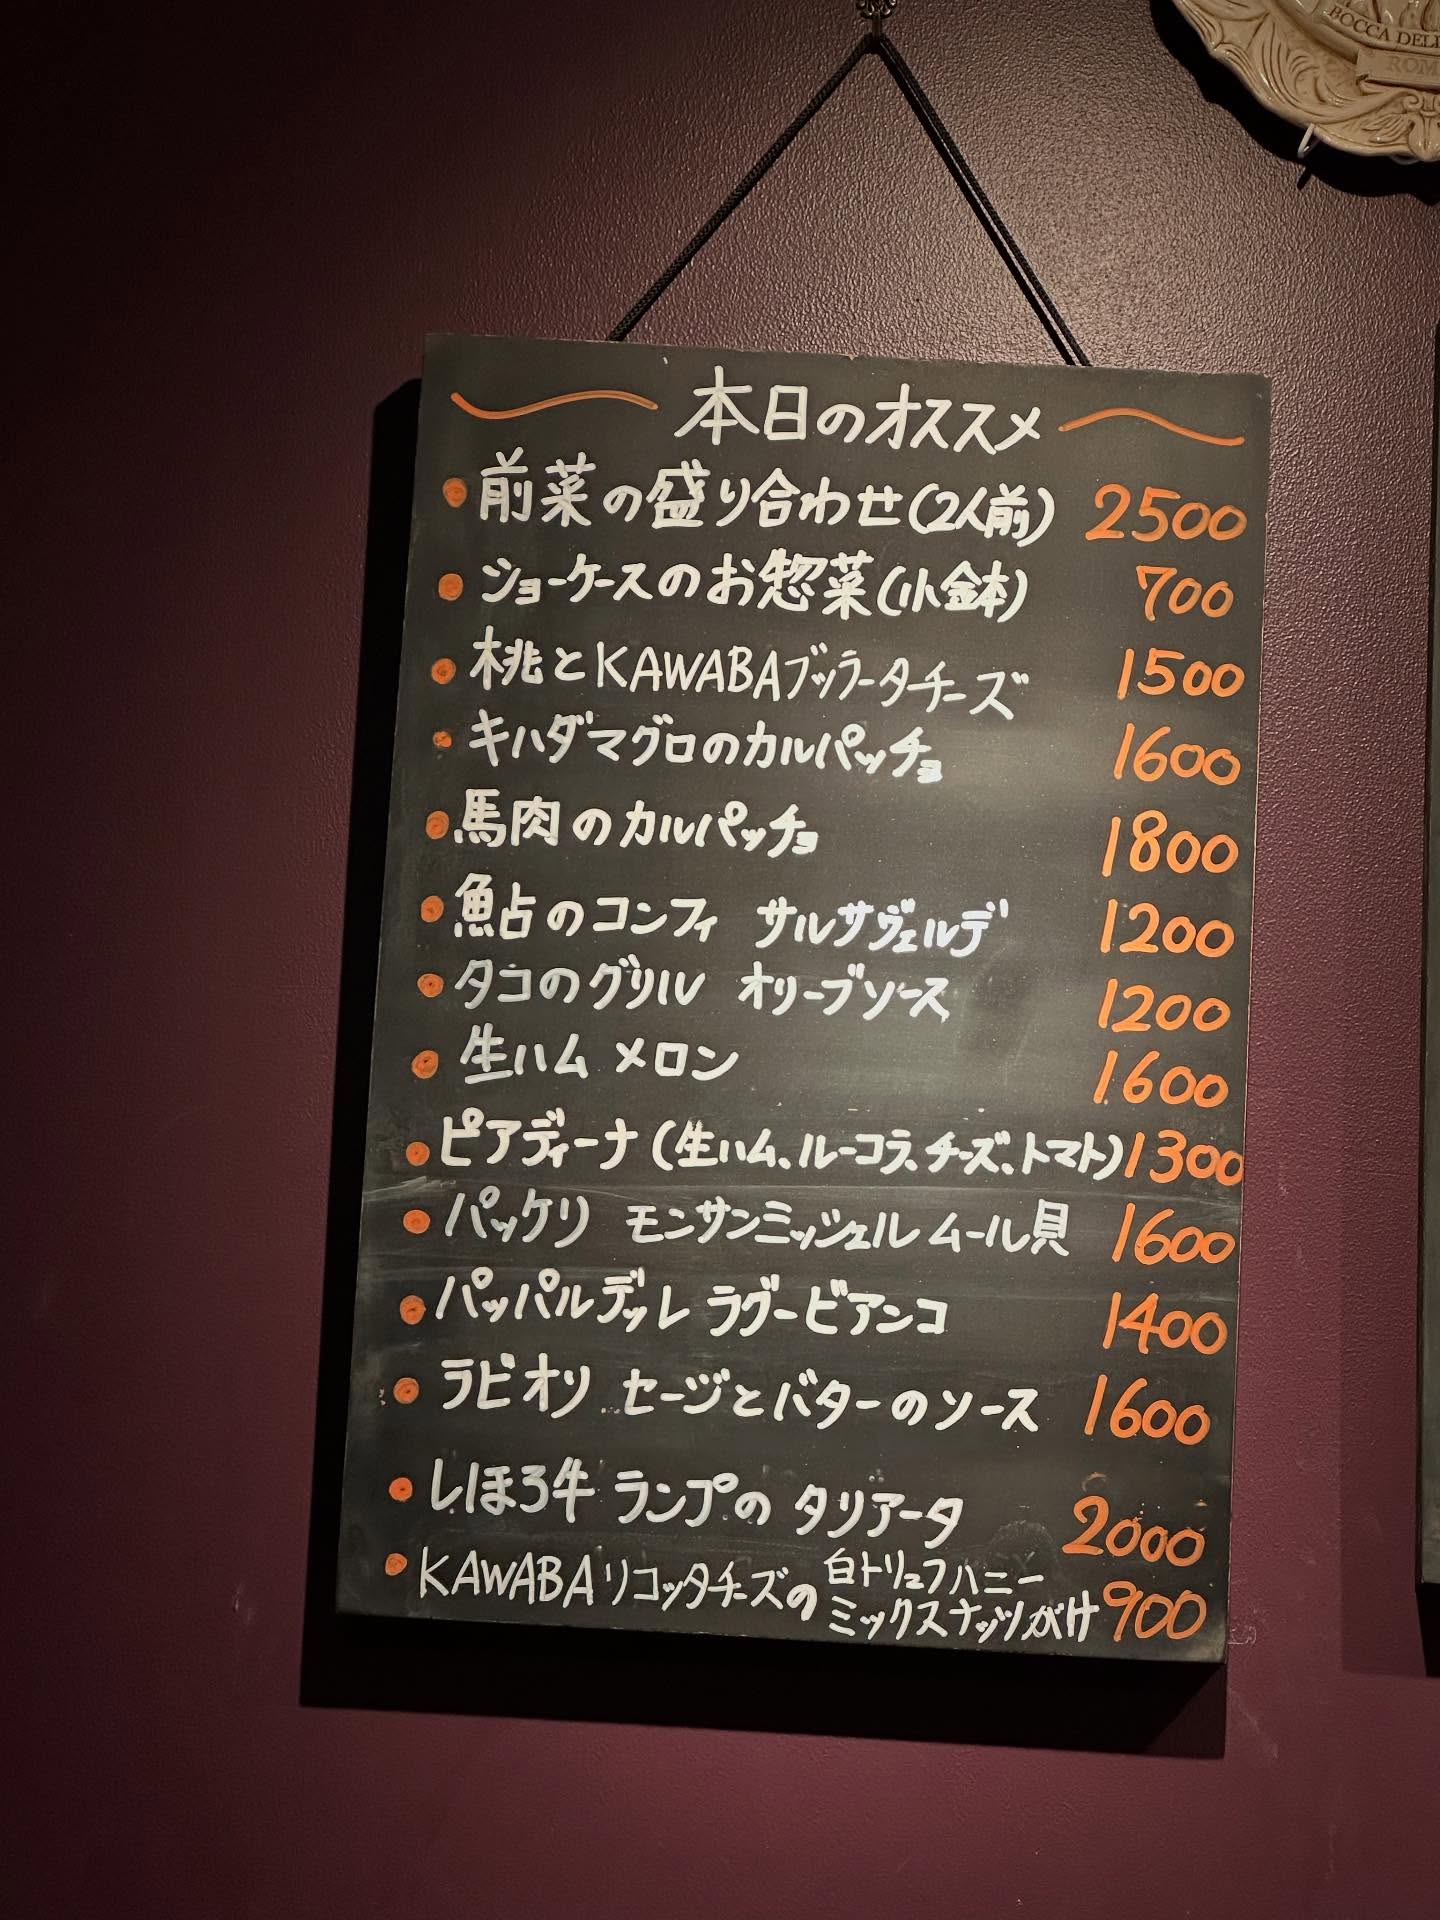 BOCCA DELL
ROM
本日のオススメ
前菜の盛り合わせ(2人前) 2500
ショーケースのお惣菜(小鉢) 700
桃とKAWABAブッラータチーズ 1500
キハダマグロのカルパッチョ 1600
馬肉のカルパッチョ 1800
鮎のコンフィ サルサヴェルデ 1200
タコのグリル オリーブソース 1200
生ハム メロン 1600
ピアディーナ(生ハム、ルーコラ、チーズ、トマト) 1300
パッケリ モンサンミッシェルムール貝 1600
パッパルデッレ ラグービアンコ 1400
ラビオリ セージとバターのソース 1600
しほろ牛 ランプの タリアータ 2000
KAWABAリコッタチーズの白トリュフハニー
ミックスナッツがけ 900